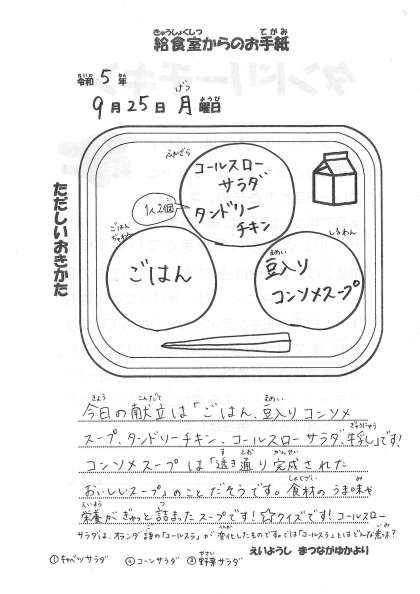 給食室からのお手紙
きゅうしょくしつ てがみ
令和 5 年
れいわ ねん
9 月 25 日 月 曜日
げつ ようび
ただしいおきかた
ふかざら
コールスロー
サラダ
タンドリー
チキン
1人2個
ごはん
ちゃわん
ごはん
しるわん
まめい
豆入り
コンソメスープ
きょう こんだて まめい
今日の献立は「ごはん、豆入りコンソメ
ぎゅうにゅう
スープ、タンドリーチキン、コールスローサラダ、牛乳」です!
す とお かんせい
コンソメスープは「透き通り完成された
しょくざい み
おいしいスープ」のことだそうです。食材のうま味や
えいよう つ
栄養がぎゅっと詰まったスープです!☆クイズです!コールスロー
サラダは、オランダ語の「コールスラ」が変化したものです。では「コールスラ」とはどんな意味?
①キャベツサラダ ②コーンサラダ ③野菜サラダ
やさい
えいようし まつながゆかより